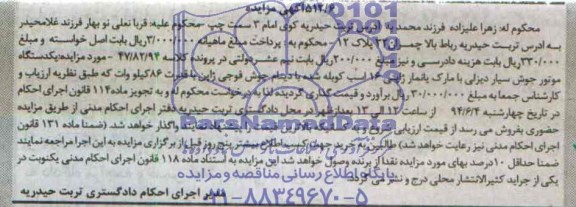 ۵۱۴/۶آگهی مزایده
محکوم له: زهرا علیزاده فرزند محمد به آدرس تربت حیدریه کوی امام ۳ سمت چپ محکوم علیه: قربانعلی نو بهار فرزند غلامحیدر
به ادرس تربت حیدریه رباط بالا پلاک ۱۲ محکوم به: پرداخت مبلغ ماهیانه ۳/۰۰۰/۰۰۰ریال بابت اصل خواسته و مبلغ
۳۳۰/۰۰۰ریال بابت هزینه دادرسی و نیز مبلغ ۲۰۰/۰۰۰ریال بابت نیم عشردولتی در پرونده کلاسه ۴۷/۸۲/۹۴ - مورد مزایده:یکدستگاه
موتور جوش سیار دیزلی با مارک یانمار ژاپن ۱۶ اسب کوپله شده با دینام جوش فوجی ژاپن با قدرت ۸۶کیلو وات که طبق نظریه ارزیاب و
کارشناس جمعا به مبلغ ۳۰/۰۰۰/۰۰۰ریال برآورد و قیمت گذاری گردیده لذا به درخواست محکوم له و به تجویز ماده۱۱۴ قانون اجرای احکام
در تاریخ چهارشنبه ۹۴/۶/۴ از ساعت ۱۲ الی ۱۳ بعداز ظهر در محل دادگستری تربت حیدریه دفتر اجرای احکام مدنی از طریق مزایده
حضوری بفروش می رسد از قیمت ارزیابی شروع و به کسانیکه بالاترین قیمت را پیشنهاد نمایند واگذار خواهد شد. (ضمنا ماده ۱۳۱ قانون
اجرای احکام مدنی نیز رعایت خواهد شد) طالبین به خرید جهت کسب اطلاع بیشتر پنج روز قبل از برگزاری مزایده به این اجرا مراجعه نمایند
ضمنا حداقل ۱۰درصد بهای مورد مزایده نقدا از برنده وصول خواهد شد این مزایده به استناد ماده ۱۱۸ قانون اجرای احکام مدنی یکنوبت در
یکی از جراید کثیرالانتشار محلی درج و نشر می گردد.
مدیر اجرای احکام دادگستری تربت حیدریه
ParsNamadData
پایگاه اطلاع رسانی مناقصه و مزایده
۰۲۱-۸۸۳۴۹۶۷۰-۵